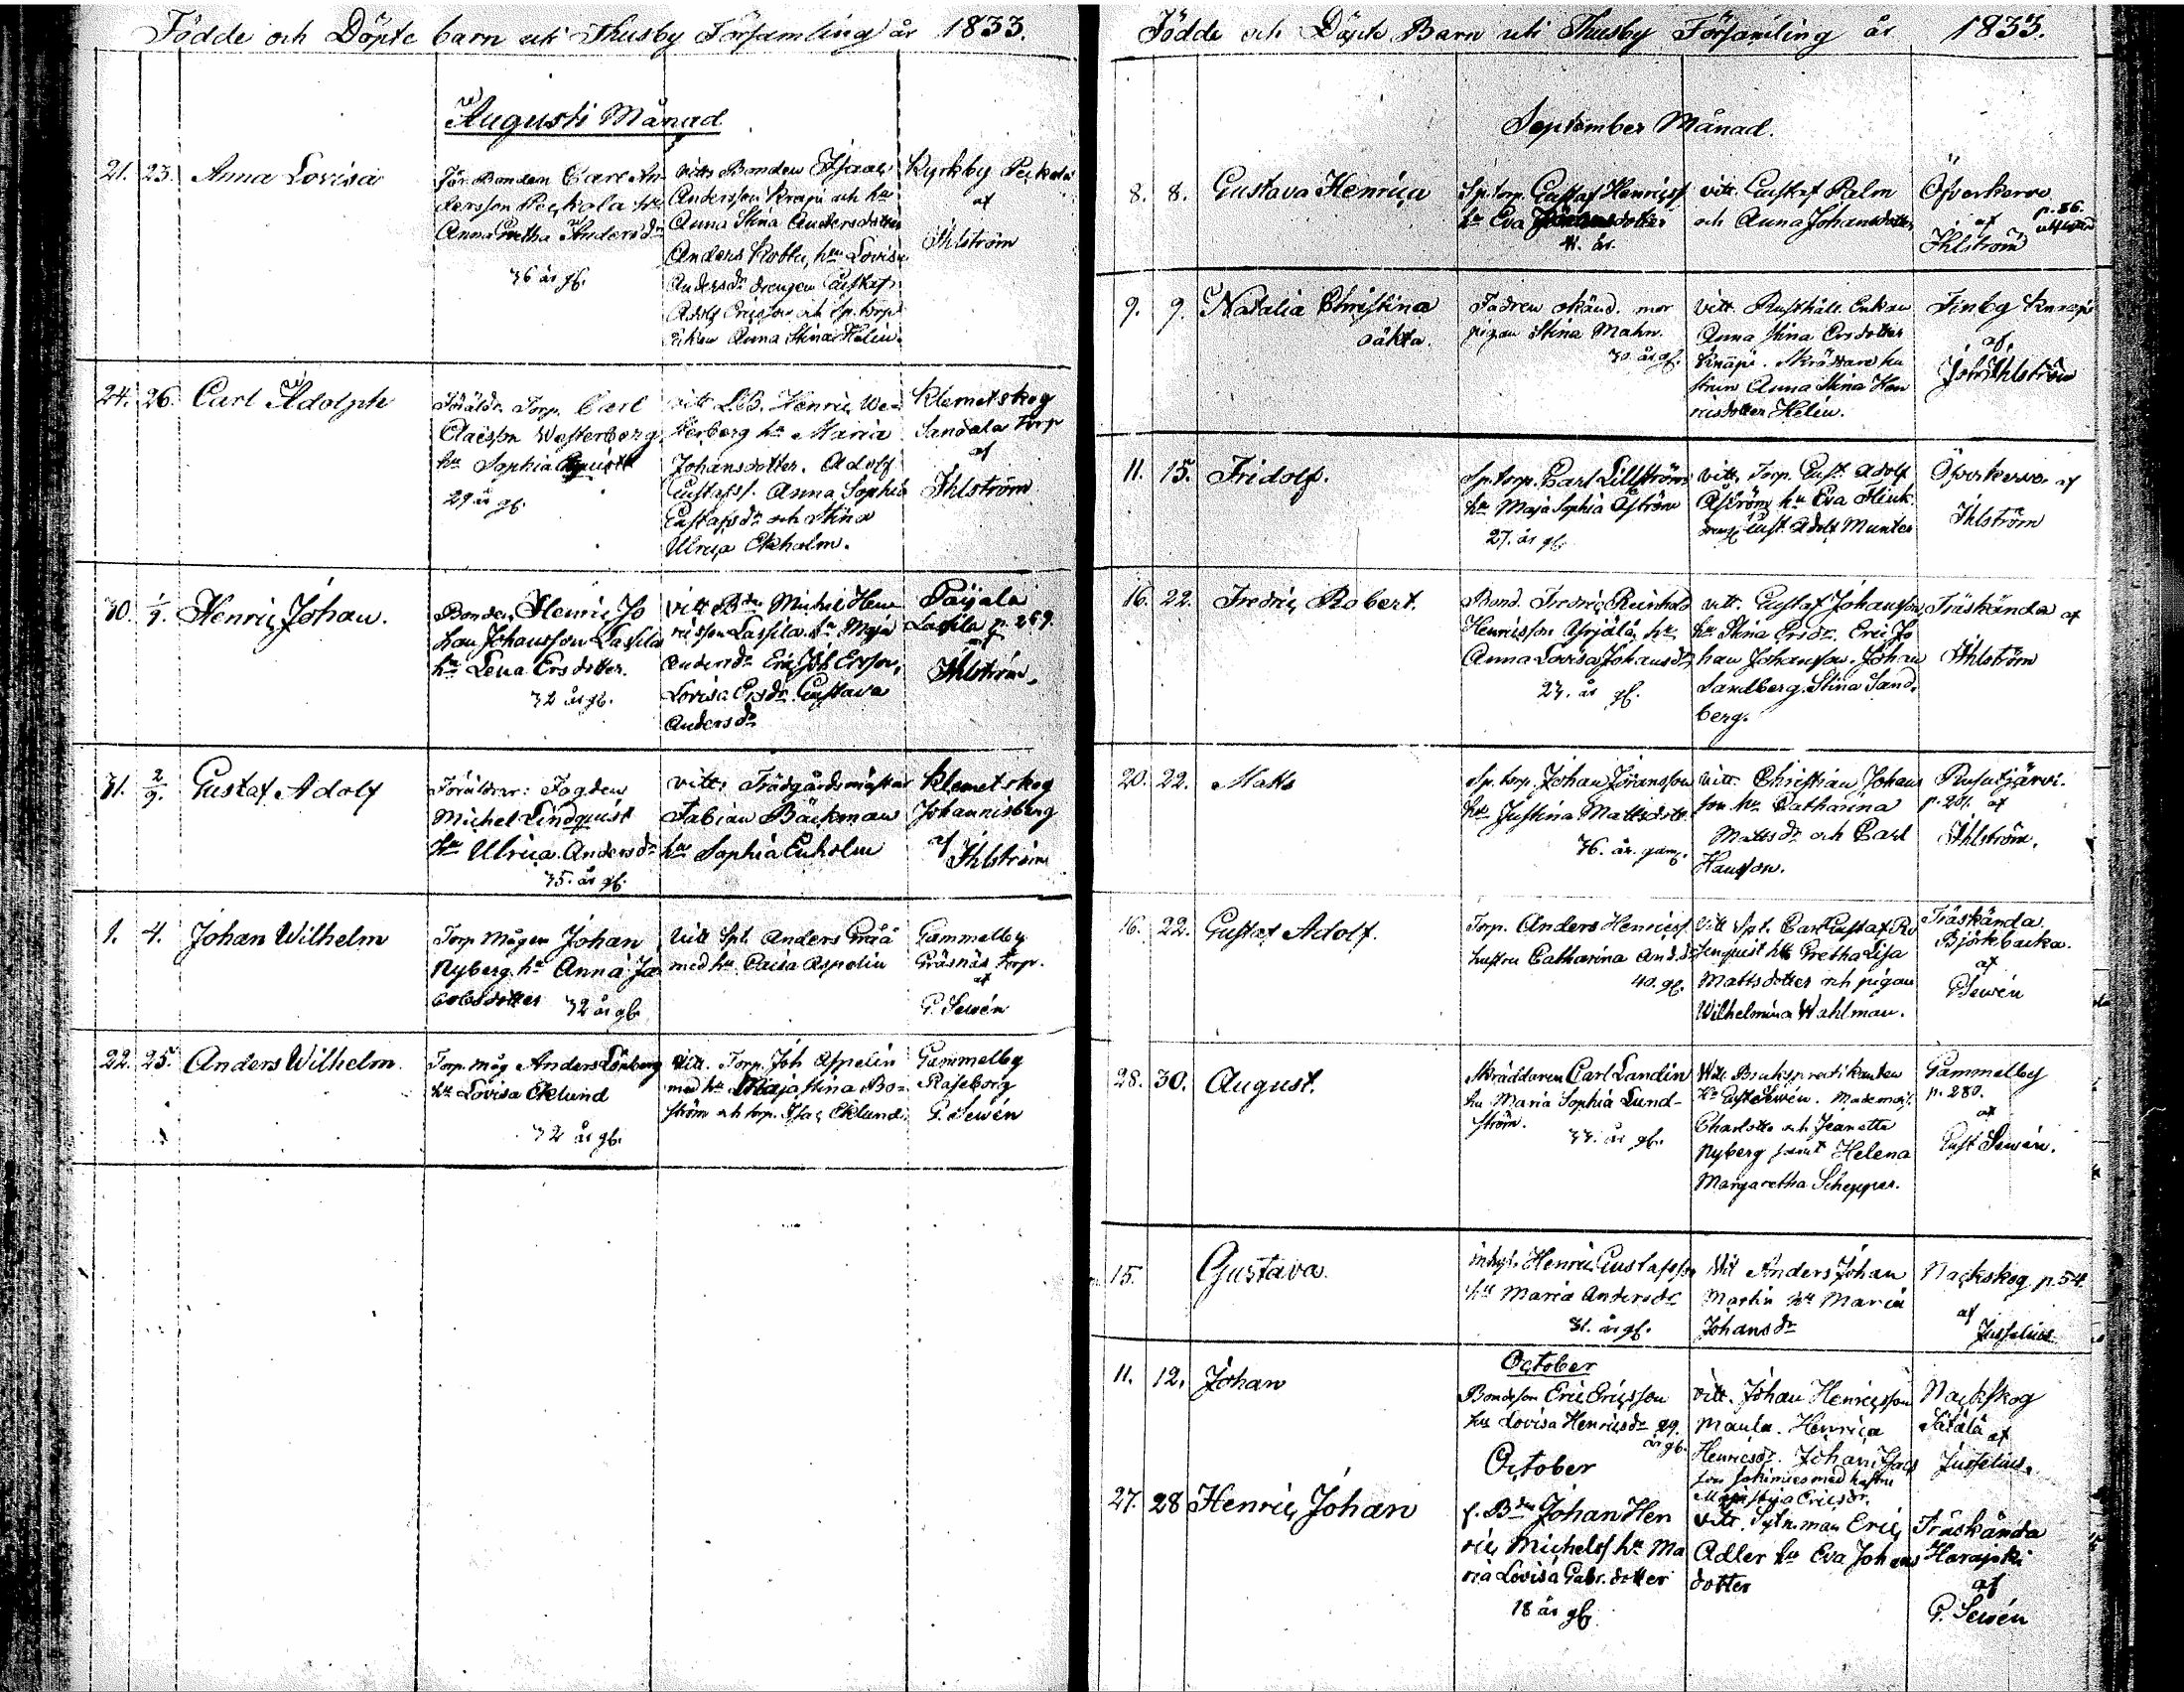 Födde och Döpte barn uti Thusby Församling år 1833.
Augusti Månad
21. 23. Anna Lovisa
för. Bonden Carl An
dersson Peckola hu
Anna Gretha Andersdr
36 år gl.
vitt. Bonden Isaac
Andersson Knapi och hu
Anna Stina Andersdotter
Anders hu Lovisa
Andersdr drengen Gustaf
Adolf Ericsson och Sp. torp.
Anna Stina Helin.
Kyrkby Peckola
af
Ihlström
24. 26. Carl Adolph
Föräldr. Torp. Carl
Claesson Westerberg
hu Sophia
29 år gl.
vitt. Henric We-
sterberg hu Maria
Johansdotter. Adolf
Gustafss. Anna Sophia
Gustafsdr och Stina
Ulrica Ekholm.
Klemetskog
Sandala torp
af
Ihlström
30. 1/9. Henric Johan.
Bonden Henric Jo
han Johansson Lassila
hu Lena Ersdotter.
32 år gl.
vitt. Bdn Michel Hen
ricsson Lassila. hu Maja
Andersdr Eric Joh Ersson,
Lovisa Ersdr. Gustava
Andersdr
Paijala
Lassila p. 269.
af
Ihlström.
31. 2/9. Gustaf Adolf
Föräldrar: Fogden
Michel Lindquist
hu Ulrica Andersdr
35. år gl.
vitt: Trädgårdsmästar
Fabian Bäckman
hu Sophia Enholm
Klemetskog
Johannisberg
af Ihlström
1. 4. Johan Wilhelm
Torp. mågen Johan
Nyberg. hu Anna Ja
cobsdotter 32 år gl.
Vitt Spt. Anders Gråå
med hu. Caisa Aspelin
Gammelby
Gräsnäs torp.
af
G. Sewén
22. 25. Anders Wilhelm.
Torp. måg Anders Lönberg
hu Lovisa Eklund
32 år gl.
vitt. Torp. Joh Aspelin
med hu Maja Stina Bo-
ström och torp. Isac Eklund.
Gammelby
Raseborg
G. Sewén
Födde och Döpte Barn uti Thusby Församling år 1833.
September Månad.
8. 8. Gustava Henrica
Sp. torp. Gustaf Henricss
hu Eva Johansdotter
41. år.
vitt. Gustaf Palm
och Anna Johansdotter
Öfverkervo
af p. 86.
Ihlström
9. 9. Natalia Christina
oäkta.
Fadren okänd. mor
pigan Stina Malm.
30. år gl.
Vitt. Rusthåll. Enkan
Anna Stina Ersdotter
Knäpi. Skräddare hu
strun Anna Stina Hen
ricsdotter Helin.
Finby Knäpi
af
Joh Ihlström
11. 15. Fridolf.
Sp. torp. Carl Lillström
hu Maja Sophia Åström
27. år gl.
vitt. Torp. Gust. Adolf
Åström hu Eva Flink
dreng. Gust. Adolf Munter
Öfverkervo af
Ihlström
16. 22. Fredric Robert.
Bond. Fredric Reinhold
Henricsson Yrjälä, hu
Anna Lovisa Johansdr
23. år gl.
vitt. Gustaf Johansson
hu Stina Ersdr. Eric Jo
han Johansson. Johan
Sandberg. Stina Sand.
berg.
Träskända af
Ihlström
20. 22. Matts
Sp. torp. Johan Göransson
hu Justina Mattsdotr
36. år. gam.
vitt. Christian Johans
son hu Catharina
Mattsdr och Carl
Hansson.
Rusutjärvi.
p. 201. af
Ihlström.
16. 22. Gustaf Adolf.
Torp. Anders Henricss.
hustru Catharina And.dr
40. gl.
Vitt Spt. Carl Gustaf Ro
senquist hu Gretha Lisa
Mattsdotter och pigan
Wilhelmina Wahlman.
Träskända
Björkbacka.
af
G Sewén
28. 30. August.
Skräddaren Carl Landin
hu Maria Sophia Lund-
ström.
33. år gl.
Vitt Bruks praktikanten
Hr Gust Sewén. Mademois.
Charlotte och Jeanette
Nyberg samt Helena
Margaretha Schepper.
Gammelby
p. 280.
af
Gust Sewén.
15. Gustava.
inhys. Henric Gustafsson
hu Maria Andersdr
31. år gl.
Vit Anders Johan
Martin hu Maria
Johansdr
Nackskog p. 54.
af
Jusselius
October
11. 12. Johan
Bondeson Eric Ericsson
hu Lovisa Henricsdr 29.
år gl.
vitt. Johan Henricsson
Maula. Henrica
Henricsdr. Johan Isacs
son med hustru
Ericsdr.
Nackskog
Sätälä af
Jusselius.
October
27. 28 Henric Johan
f. Bdn Johan Hen
ric Michelss hu Ma
ria Lovisa Gabr.dotter
18 år gl.
vitt. Sytn. man Eric
Adler hu Eva Johans
dotter
Träskända
Harajoki
af
G. Sewén